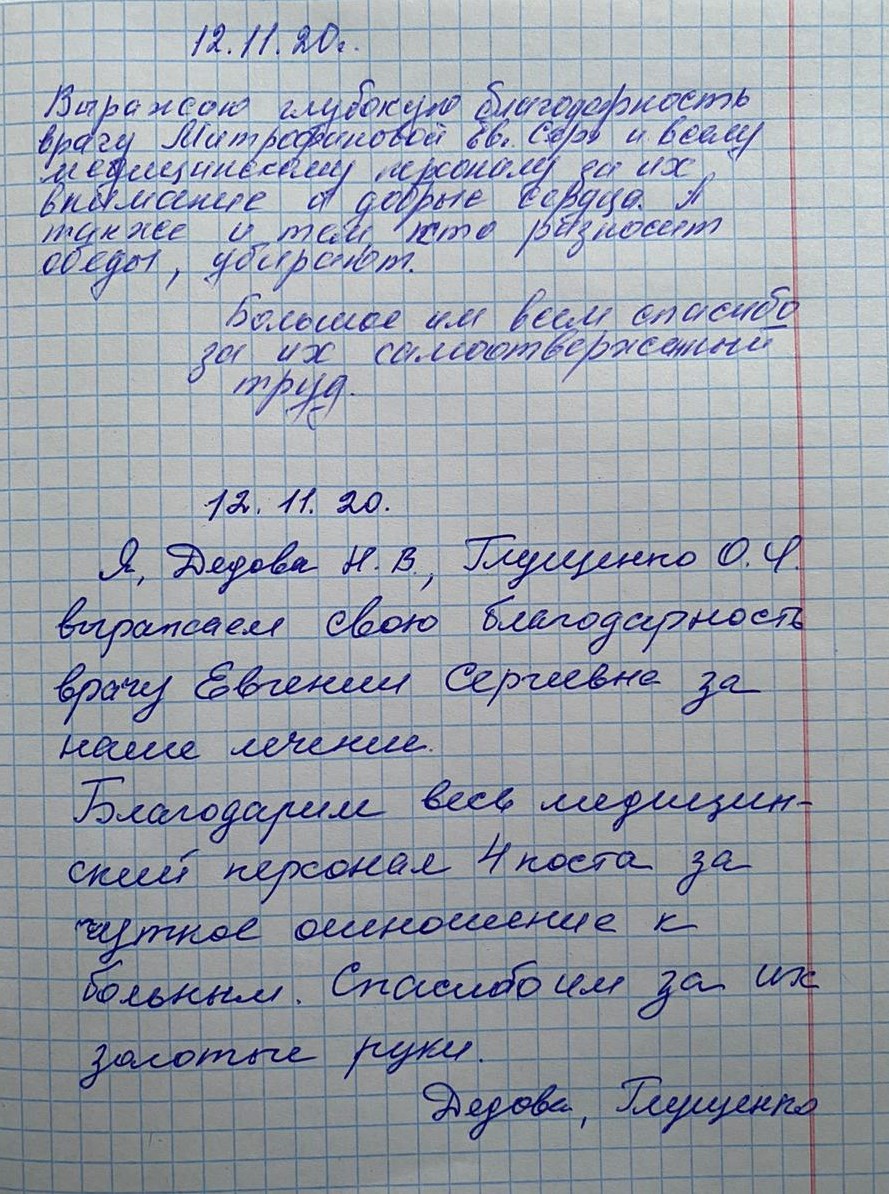 12.11.20г.
Выражаю глубокую благодарность
врачу Митрофановой Ев. Серг. и всему
медицинскому персоналу за их
внимание и добрые сердца. А
также и тем, кто разносит
обеды, убирают.
Большое им всем спасибо
за их самоотверженный
труд.
12.11.20.
Я, Дедова Н.В., Глущенко О.Ч.
выражаем свою благодарность
врачу Евгении Сергиевне за
наше лечение.
Благодарим весь медицин-
ский персонал 4 поста за
чуткое отношение к
больным. Спасибо им за их
золотые руки.
Дедова, Глущенко